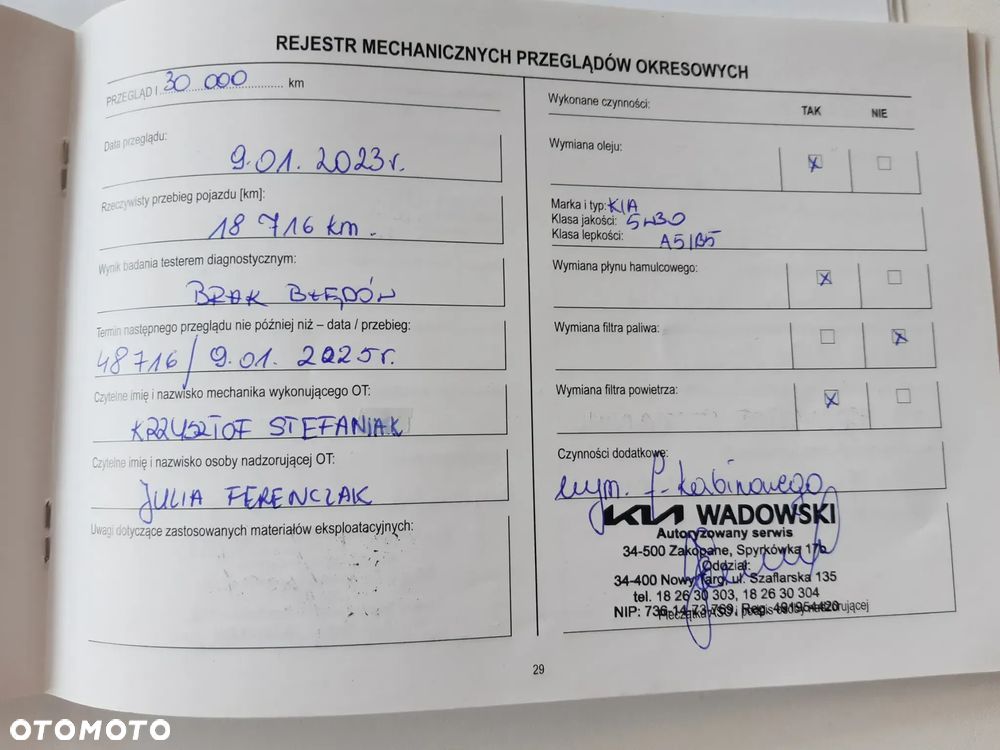 REJESTR MECHANICZNYCH PRZEGLĄDÓW OKRESOWYCH
PRZEGLĄD I 30 000 km
Data przeglądu:
9.01. 2023 r.
Rzeczywisty przebieg pojazdu [km]:
18 716 km.
Wynik badania testerem diagnostycznym:
BRAK BŁĘDÓW
Termin następnego przeglądu nie później niż – data / przebieg:
48716 / 9.01. 2025 r.
Czytelne imię i nazwisko mechanika wykonującego OT:
KRZYSZTOF STEFANIAK
Czytelne imię i nazwisko osoby nadzorującej OT:
JULIA FERENCZAK
Uwagi dotyczące zastosowanych materiałów eksploatacyjnych:
Wykonane czynności: TAK NIE
Wymiana oleju:
Marka i typ: KIA
Klasa jakości: 5W30
Klasa lepkości: A5/B5
Wymiana płynu hamulcowego:
Wymiana filtra paliwa:
Wymiana filtra powietrza:
Czynności dodatkowe:
wym. f. kabinowego
KIA WADOWSKI
Autoryzowany serwis
34-500 Zakopane, Spyrkówka 17b
Oddział:
34-400 Nowy Targ, ul. Szaflarska 135
tel. 18 26 30 303, 18 26 30 304
NIP: 736-14-73-769, Reg.
Pieczątka ASO i podpis osoby nadzorującej
29
OTOMOTO